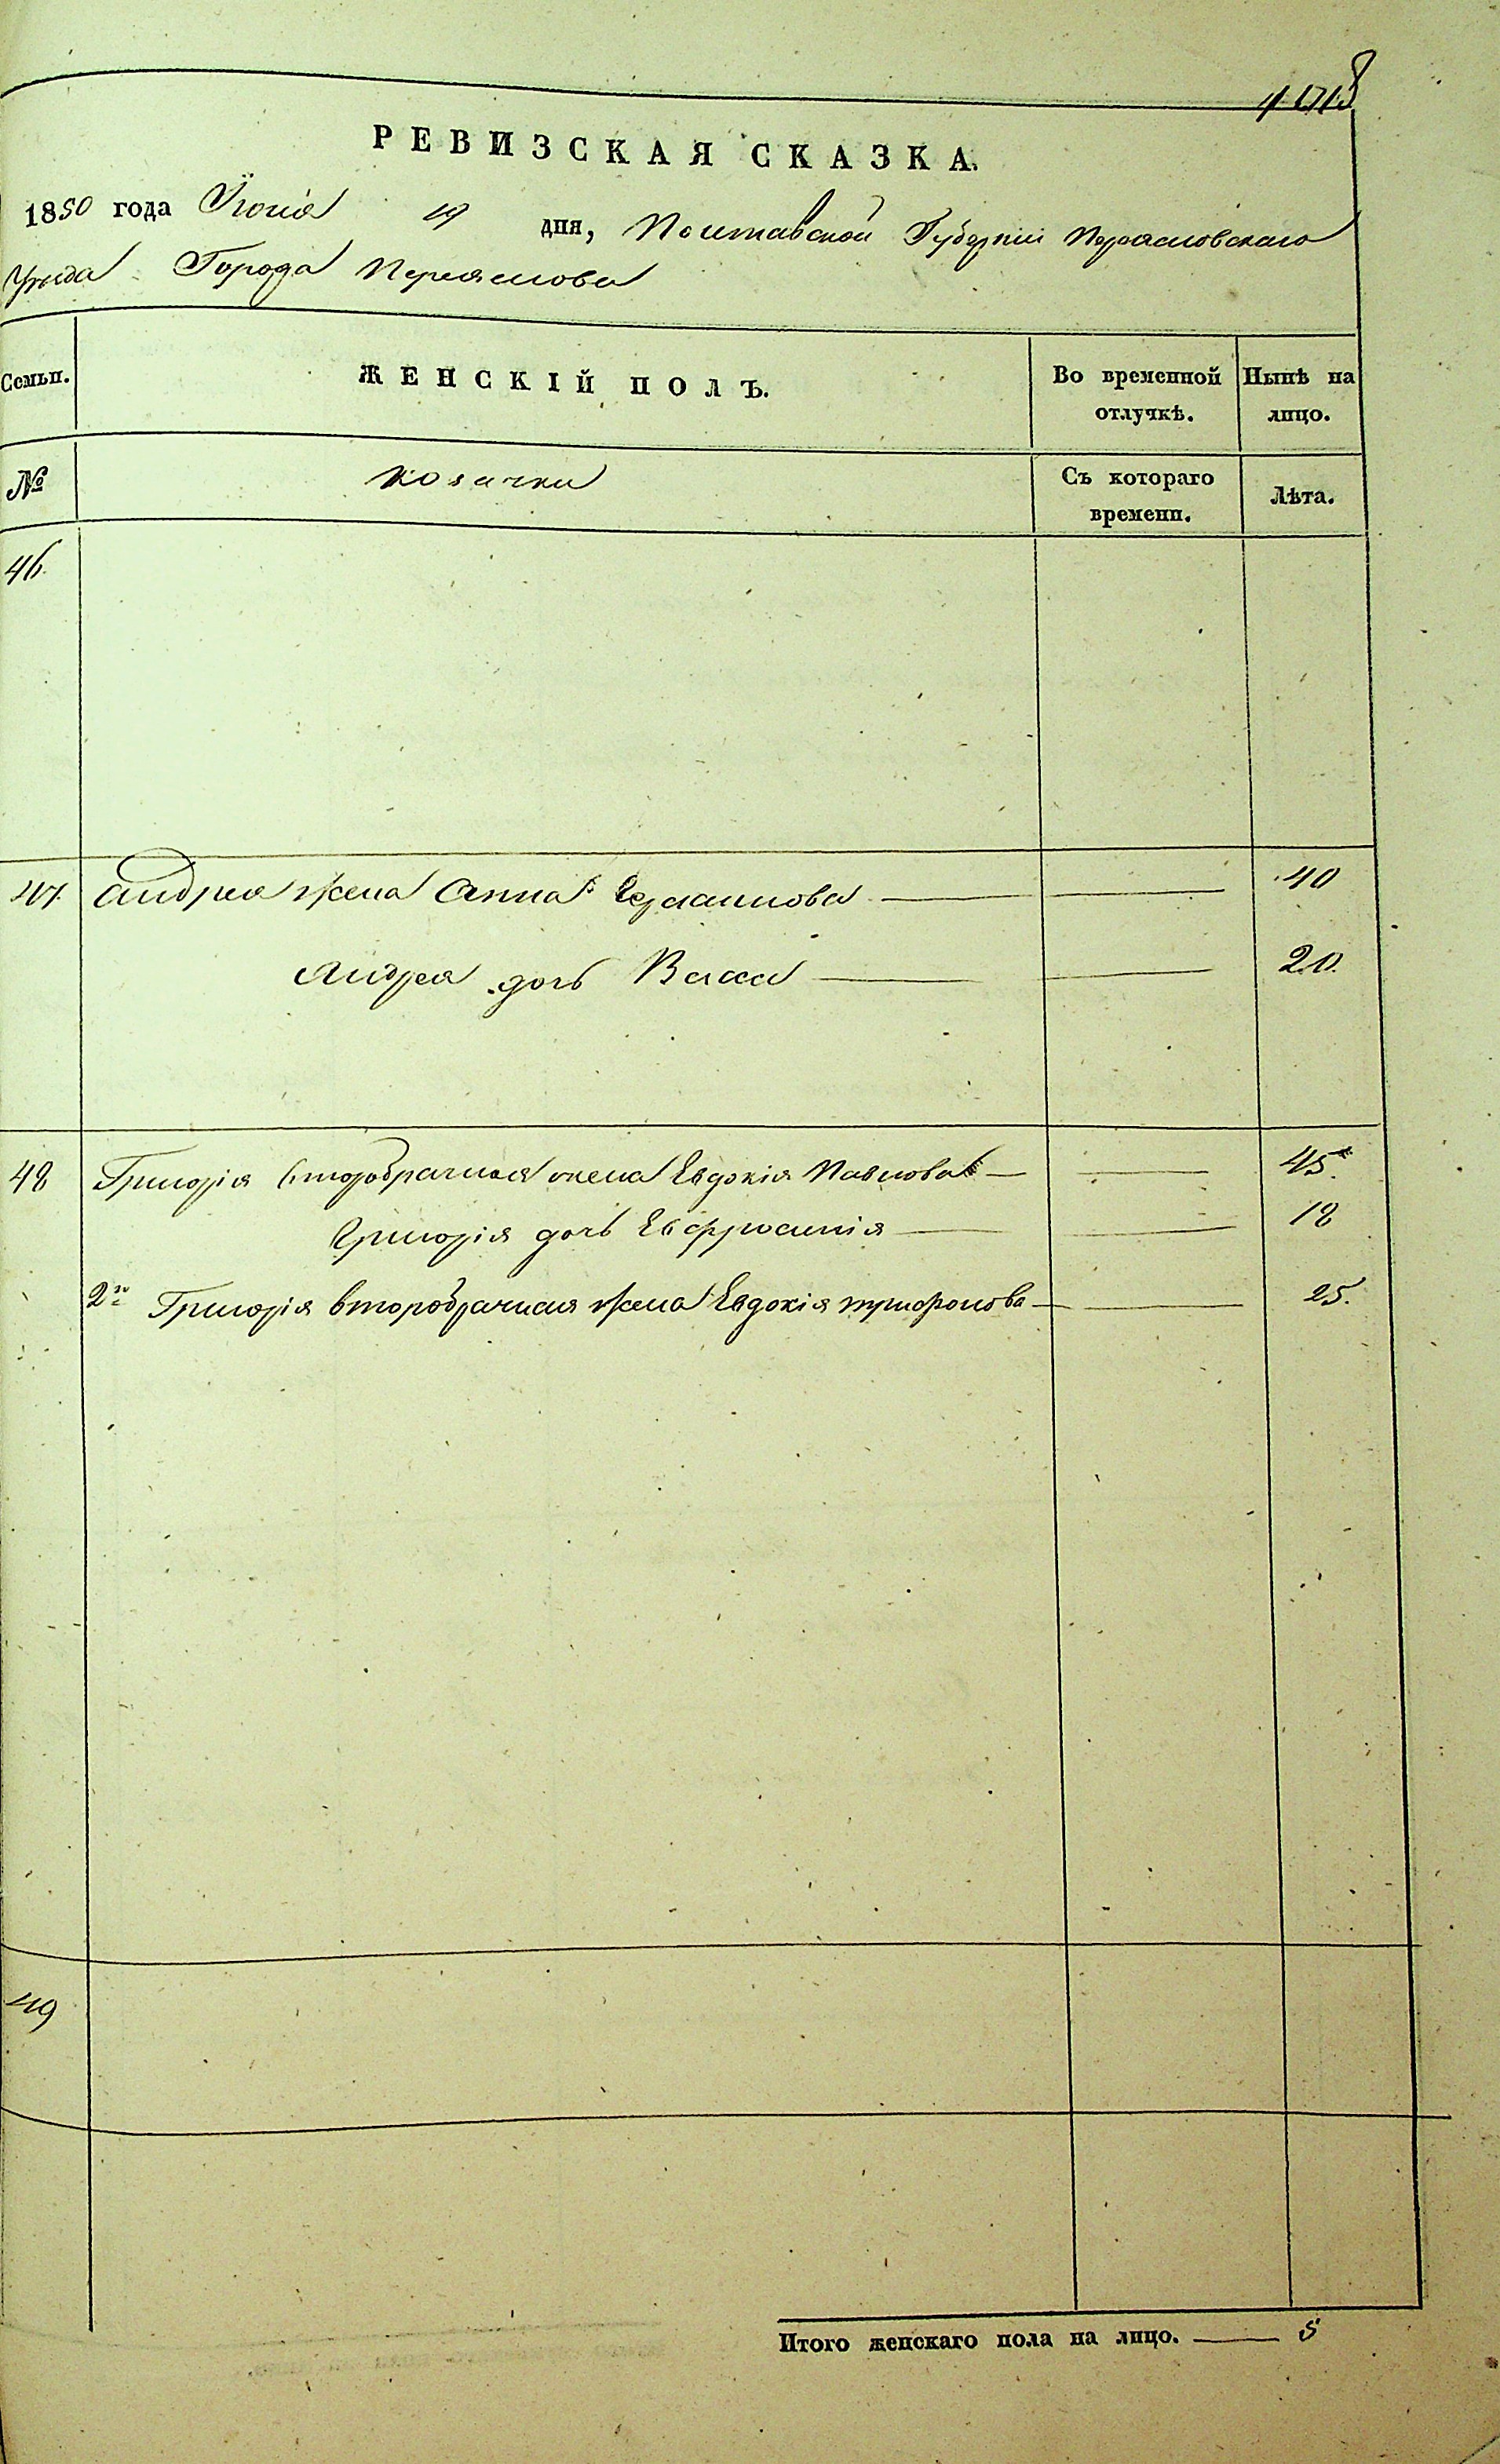 РЕВИЗСКАЯ СКАЗКА.
1850 года Іюня 19 дня, Полтавской Губерніи Переяславскаго
Уѣзда Города Переяслова
Семьи. ЖЕНСКІЙ ПОЛЪ. Во временной отлучкѣ. Нынѣ на лицо.
№ Козачки Съ котораго времени. Лѣта.
46.
47. Андрея жена Анна 40
Андрея дочь Васса 20.
48 Григорія второбрачная жена Евдокія Павлова 45.
Григорія дочь Евфросинія 18
2го Григорія второбрачная жена Евдокія Трифонова 25.
49
Итого женскаго пола на лицо. 5